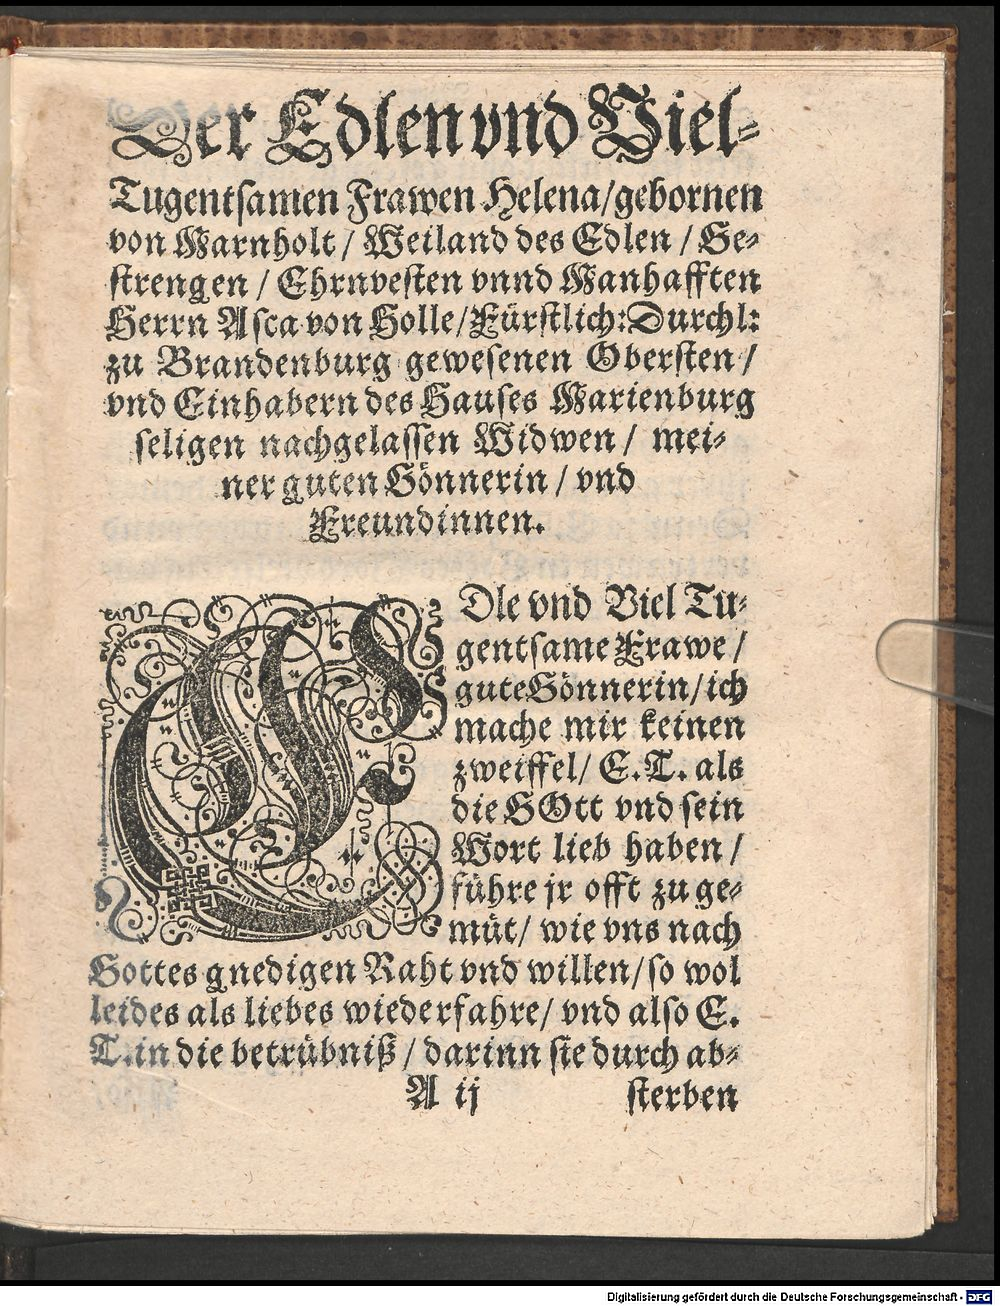 Der Edlen vnd Viel-
Tugentsamen Frawen Helena/gebornen
von Marnholt / Weiland des Edlen / Ge-
strengen / Ehrnvesten vnnd Manhafften
Herrn Asca von Holle/Fürstlich: Durchl:
zu Brandenburg gewesenen Obersten /
vnd Einhabern des Hauses Marienburg
seligen nachgelassen Widwen / mei-
ner guten Gönnerin / vnd
Freundinnen.
EDle vnd Viel Tu-
gentsame Frawe /
gute Gönnerin/ich
mache mir keinen
zweiffel/ E. T. als
die GOtt vnd sein
Wort lieb haben /
führe jr offt zu ge-
müt/ wie vns nach
Gottes gnedigen Raht vnd willen/so wol
leides als liebes wiederfahre/ vnd also E.
T. in die betrübniß / darinn sie durch ab-
A ij sterben
Digitalisierung gefördert durch die Deutsche Forschungsgemeinschaft - DFG